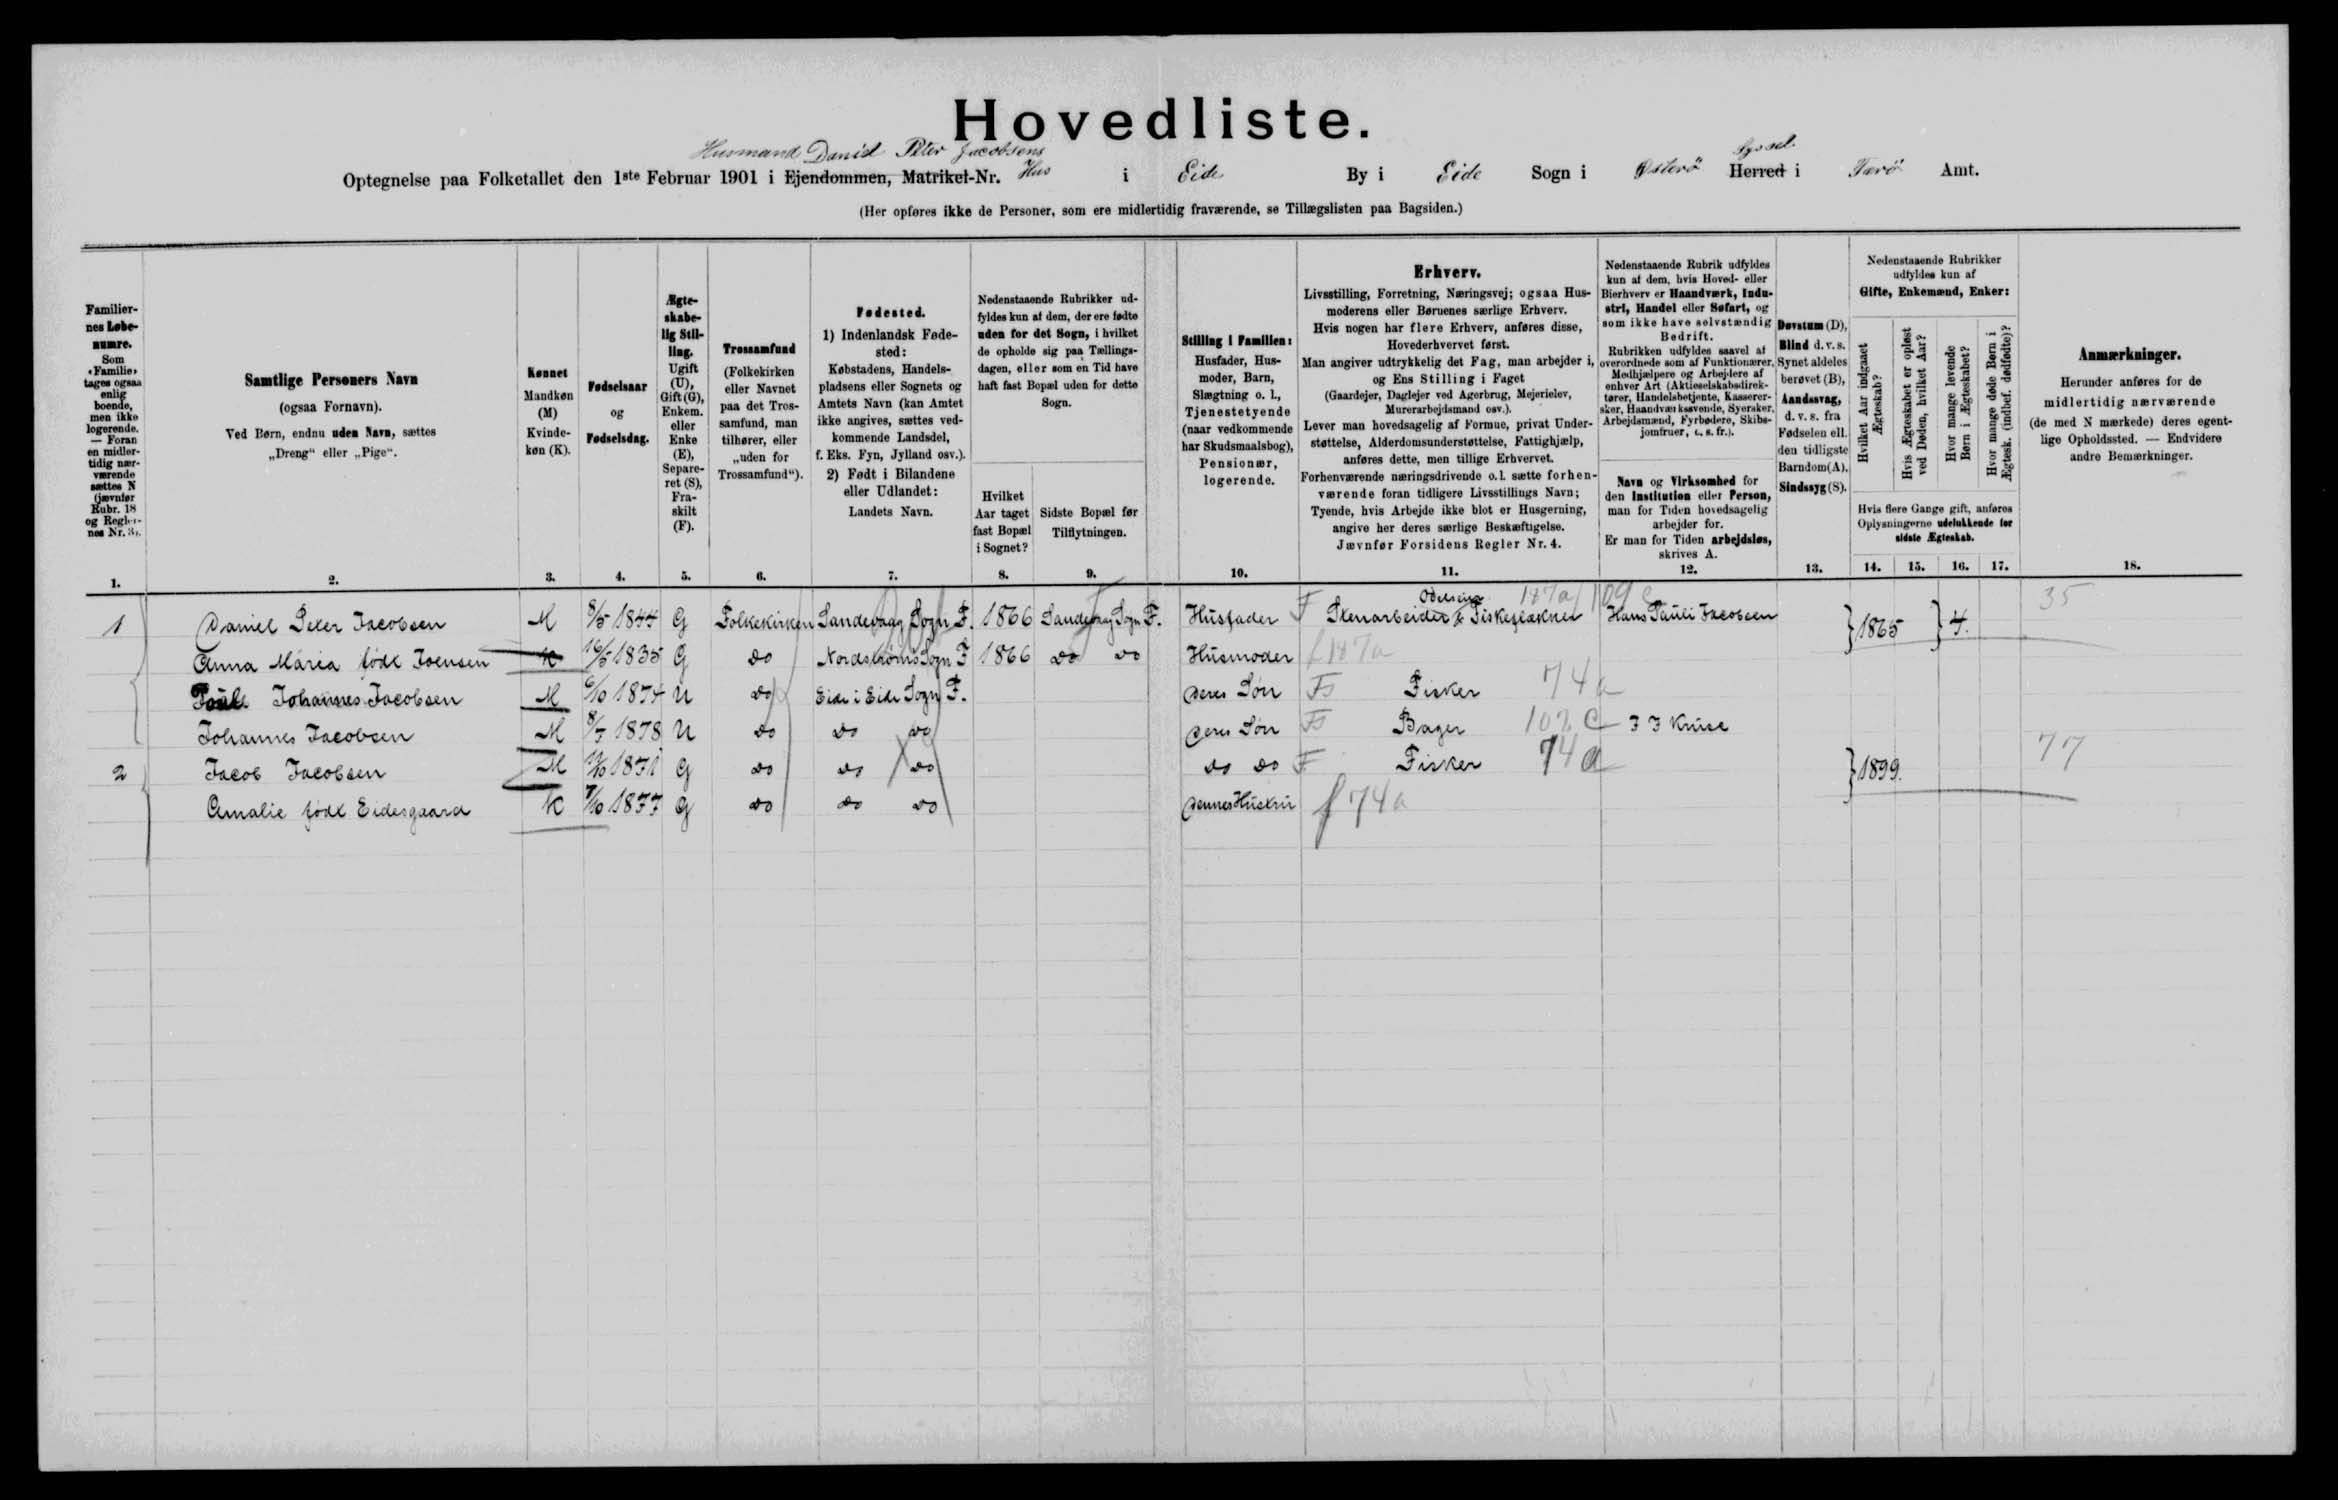 Hovedliste.
Husmand Daniel Peter Jacobsens
Optegnelse paa Folketallet den 1ste Februar 1901 i Ejendommen, Matrikel-Nr. Hus i Eide By i Eide Sogn i Østerö Herred Syssel i Færö Amt.
(Her opføres ikke de Personer, som ere midlertidig fraværende, se Tillægslisten paa Bagsiden.)
Familiernes Løbenumre.
Som «Familie» tages ogsaa enlig boende, men ikke logerende. — Foran en midlertidig nærværende sættes N (jævnfør Rubr. 18 og Reglernes Nr. 3).
1.
Samtlige Personers Navn
(ogsaa Fornavn).
Ved Børn, endnu uden Navn, sættes
„Dreng“ eller „Pige“.
2.
Kønnet
Mandkøn
(M)
Kvinde-
køn (K).
3.
Fødselsaar
og
Fødselsdag.
4.
Ægte-
skabe-
lig Stil-
ling.
Ugift
(U),
Gift (G),
Enkem.
eller
Enke
(E),
Separe-
ret (S),
Fra-
skilt
(F).
5.
Trossamfund
(Folkekirken
eller Navnet
paa det Tros-
samfund, man
tilhører, eller
„uden for
Trossamfund“).
6.
Fødested.
1) Indenlandsk Føde-
sted:
Købstadens, Handels-
pladsens eller Sognets og
Amtets Navn (kan Amtet
ikke angives, sættes ved-
kommende Landsdel,
f. Eks. Fyn, Jylland osv.).
2) Født i Bilandene
eller Udlandet:
Landets Navn.
7.
Nedenstaaende Rubrikker ud-
fyldes kun af dem, der ere fødte
uden for det Sogn, i hvilket
de opholde sig paa Tællings-
dagen, eller som en Tid have
haft fast Bopæl uden for dette
Sogn.
Hvilket
Aar taget
fast Bopæl
i Sognet?
8.
Sidste Bopæl før
Tilflytningen.
9.
Stilling i Familien:
Husfader, Hus-
moder, Barn,
Slægtning o. l.,
Tjenestetyende
(naar vedkommende
har Skudsmaalsbog),
Pensionær,
logerende.
10.
Erhverv.
Livsstilling, Forretning, Næringsvej; ogsaa Hus-
moderens eller Børnenes særlige Erhverv.
Hvis nogen har flere Erhverv, anføres disse,
Hovederhvervet først.
Man angiver udtrykkelig det Fag, man arbejder i,
og Ens Stilling i Faget
(Gaardejer, Daglejer ved Agerbrug, Mejerielev,
Murerarbejdsmand osv.).
Lever man hovedsagelig af Formue, privat Under-
støttelse, Alderdomsunderstøttelse, Fattighjælp,
anføres dette, men tillige Erhvervet.
Forhenværende næringsdrivende o.l. sætte forhen-
værende foran tidligere Livsstillings Navn;
Tyende, hvis Arbejde ikke blot er Husgerning,
angive her deres særlige Beskæftigelse.
Jævnfør Forsidens Regler Nr. 4.
11.
Nedenstaaende Rubrik udfyldes
kun af dem, hvis Hoved- eller
Bierhverv er Haandværk, Indu-
stri, Handel eller Søfart, og
som ikke have selvstændig
Bedrift.
Rubrikken udfyldes saavel af
overordnede som af Funktionærer,
Medhjælpere og Arbejdere af
enhver Art (Aktieselskabsdirek-
tører, Handelsbetjente, Kasserer-
sker, Haandværkssvende, Syersker,
Arbejdsmænd, Fyrbødere, Skibs-
jomfruer, o. s. fr.).
Navn og Virksomhed for
den Institution eller Person,
man for Tiden hovedsagelig
arbejder for.
Er man for Tiden arbejdsløs,
skrives A.
12.
Døvstum (D),
Blind d. v. s.
Synet aldeles
berøvet (B),
Aandssvag,
d. v. s. fra
Fødselen ell.
den tidligste
Barndom (A),
Sindssyg (S).
13.
Nedenstaaende Rubrikker
udfyldes kun af
Gifte, Enkemænd, Enker:
Hvilket Aar indgaaet
Ægteskab?
Hvis Ægteskabet er opløst
ved Døden, hvilket Aar?
Hvor mange levende
Børn i Ægteskabet?
Hvor mange døde Børn i
Ægtesk. (indbef. dødfødte)?
Hvis flere Gange gift, anføres
Oplysningerne udelukkende for
sidste Ægteskab.
14. 15. 16. 17.
Anmærkninger.
Herunder anføres for de
midlertidig nærværende
(de med N mærkede) deres egent-
lige Opholdssted. — Endvidere
andre Bemærkninger.
18.
187a 109 35
1 Daniel Peter Jacobsen M 8/5 1844 G Folkekirken Sandevaag Sogn F. 1866 Sandevaag Sogn F. Husfader F Stenarbeider & Fiskeflækner Hans Pauli Jacobsen 1865 4.
Anna Maria født Joensen K 16/5 1835 G do Nordstrømø Sogn F 1866 do do Husmoder f 187a
Poul Johannes Jacobsen M 6/10 1874 U do Eide i Eide Sogn F. deres Søn Fs Fisker 74a
Johannes Jacobsen M 8/7 1878 U do do do deres Søn Fs Bager 102 C J J Kruse
2 Jacob Jacobsen M 1871 G do do do do do F Fisker 74a 1899. 77
Amalie født Eidesgaard K 7/10 1877 G do do do dennes Hustru f 74a